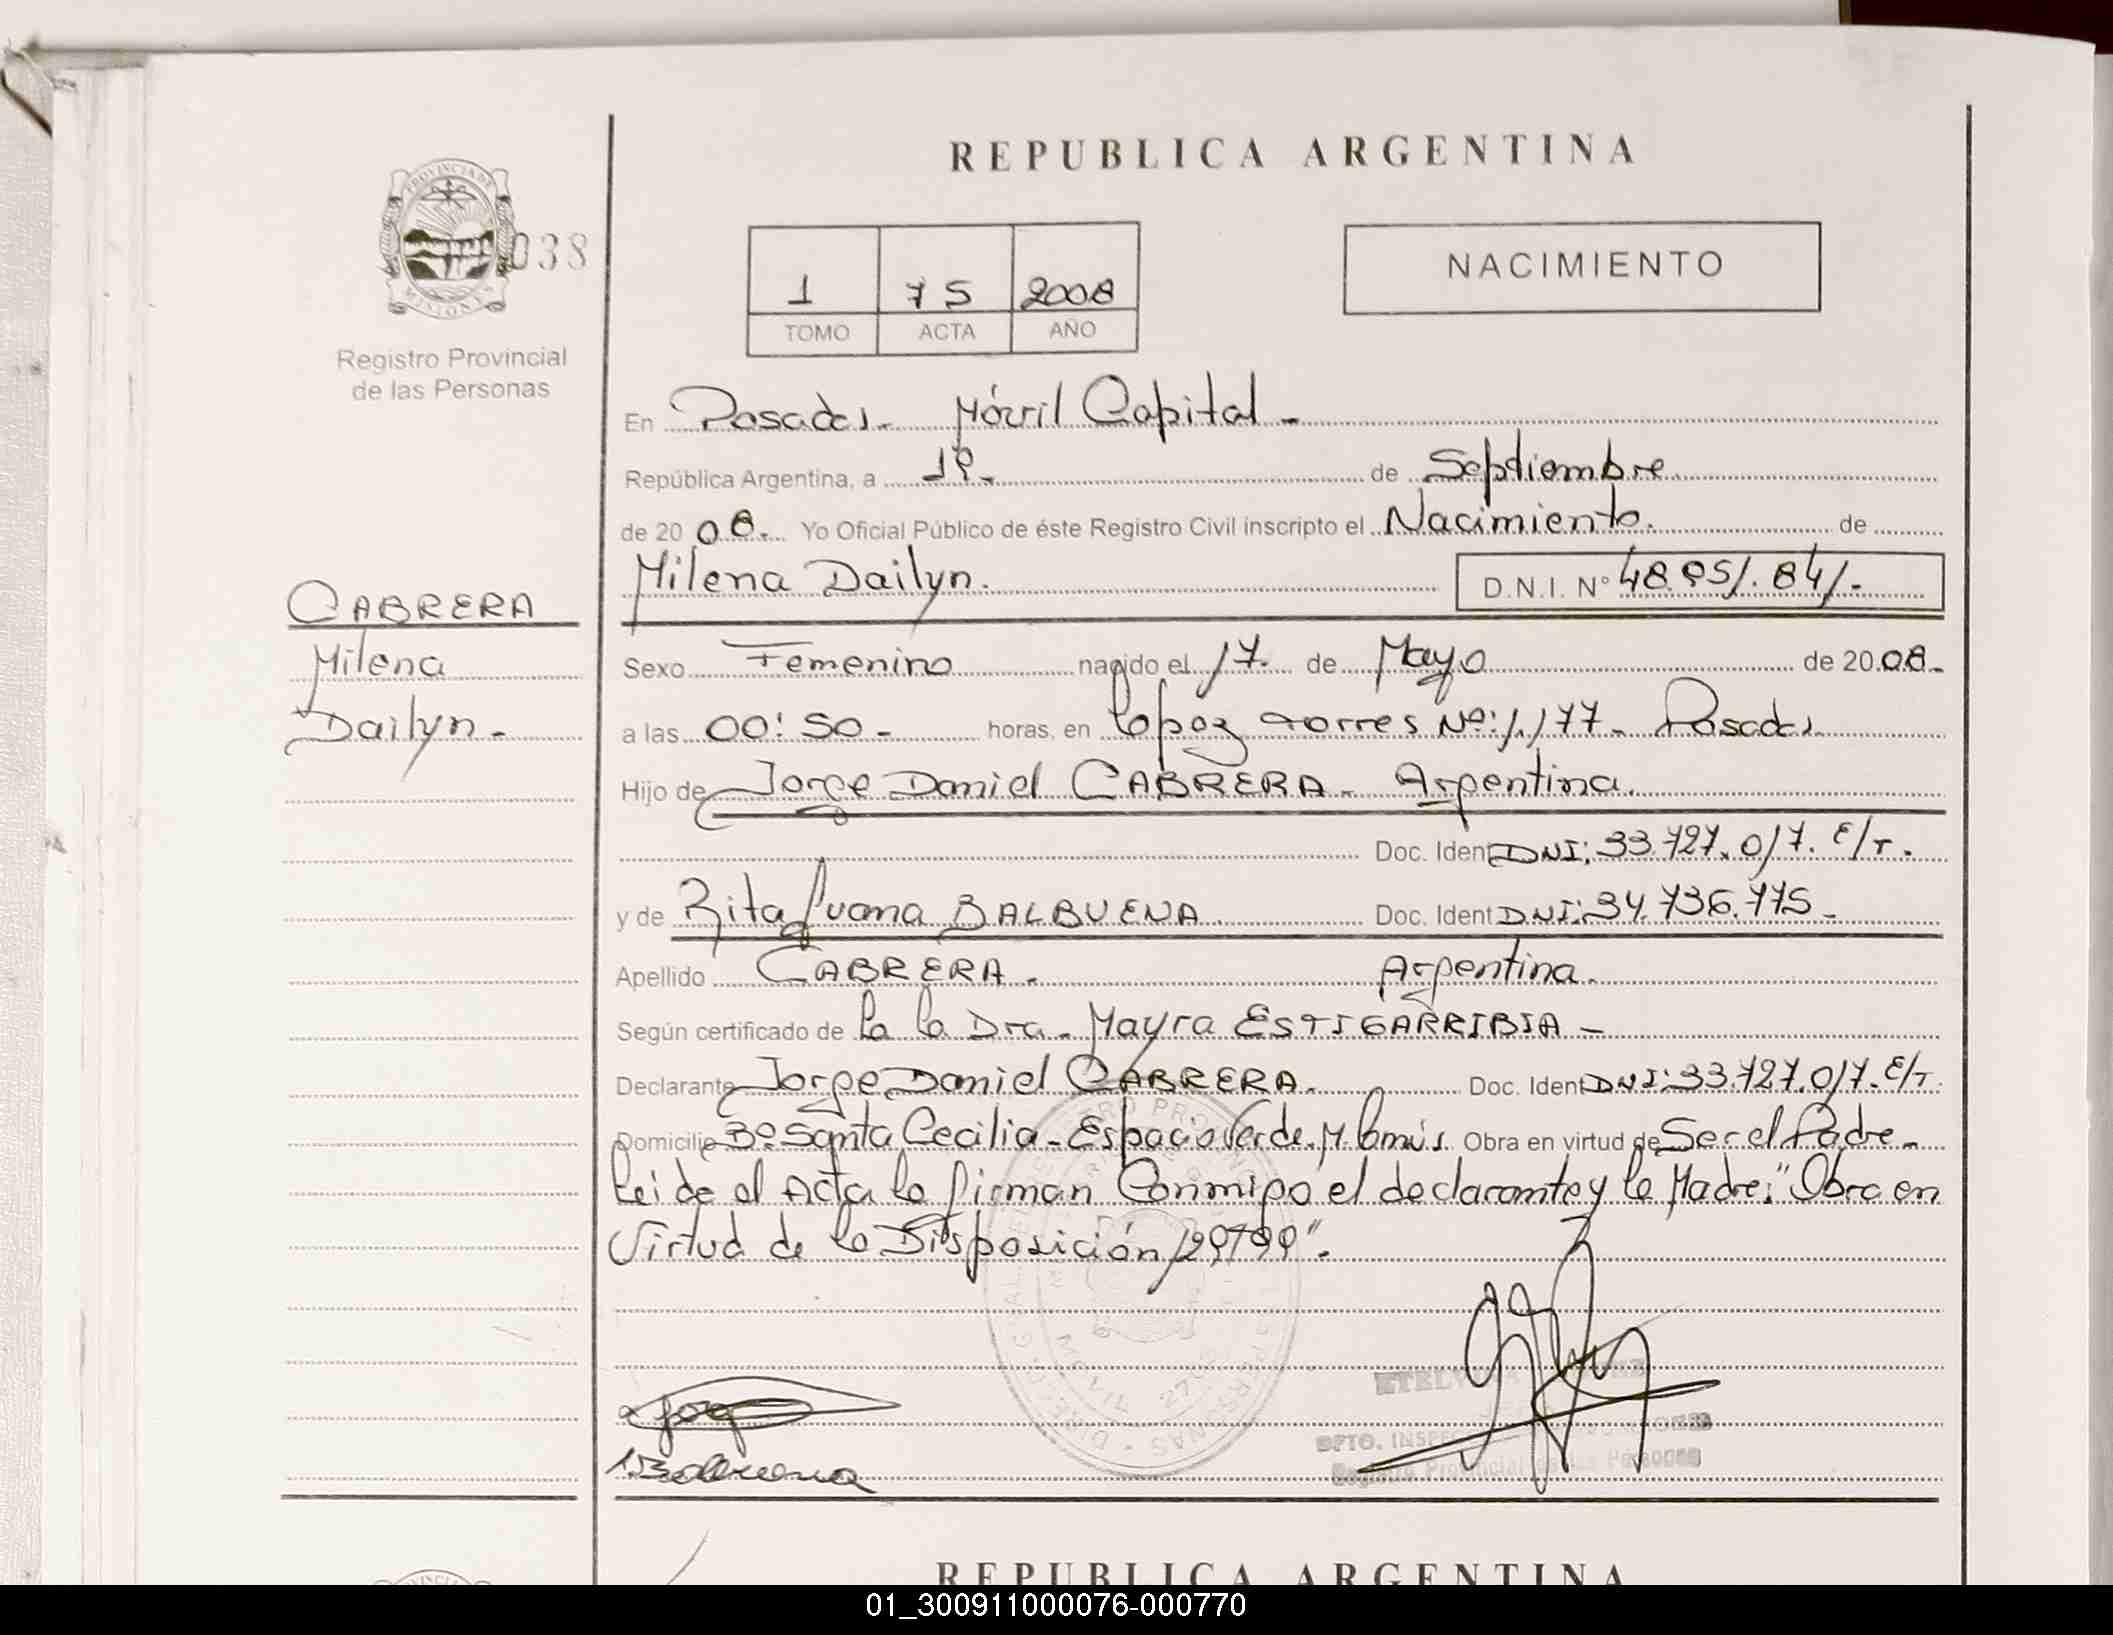 REPUBLICA ARGENTINA
PROVINCIA DE
MISIONES
038
Registro Provincial
de las Personas
1 75 2008
TOMO ACTA AÑO
NACIMIENTO
En Posadas. Móvil Capital -
República Argentina, a 1º. de Septiembre
de 2008. Yo Oficial Público de éste Registro Civil inscripto el Nacimiento. de
Milena Dailyn. D.N.I. Nº
CABRERA
Milena
Dailyn.
Sexo Femenino nacido el 17. de Mayo de 2008.
a las 00:50 - horas, en Lopez Torres Nº: 1.177 - Posadas.
Hijo de Jorge Daniel CABRERA - Argentina.
Doc. Ident DNI: 33.727.017. E/T.
y de Rita Juana BALBUENA Doc. Ident DNI: 34.736.775 -
Apellido CABRERA. Argentina.
Según certificado de la la Dra. Mayra ESTIGARRIBIA -
Declarante Jorge Daniel CABRERA. Doc. Ident DNI: 33.727.017. E/T.
Domicilio Bº Santa Cecilia - Espacio Verde. M. Lanús. Obra en virtud de Ser el Padre -
Leide el Acta la firman Conmigo el declarante y la Madre: "Obra en
Virtud de la Disposición
Balbuena
DPTO.
Registro Provincial de las Personas
REPUBLICA ARGENTINA
01_300911000076-000770